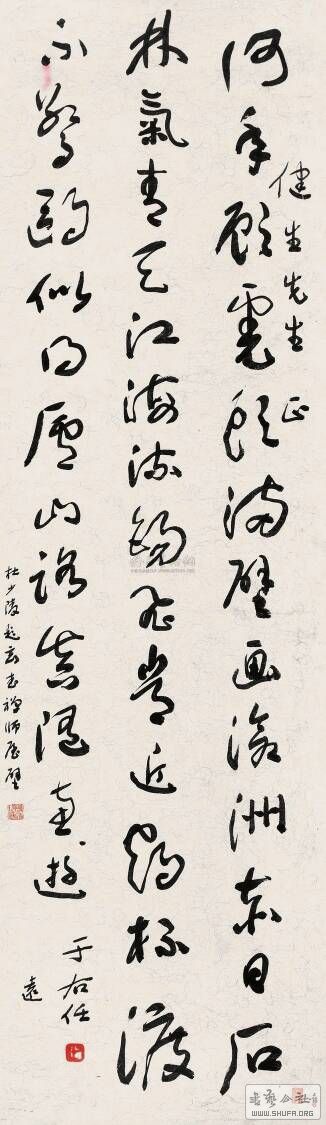 健生先生正
何年顧虎頭滿壁画滄洲赤日石
林氣青天江海流錫飛常近鶴杯渡
不驚鷗似得廬山路真隨惠遊
杜少陵題玄武禪師屋壁
于右任
遠
书艺公社
WWW.SHUFA.ORG